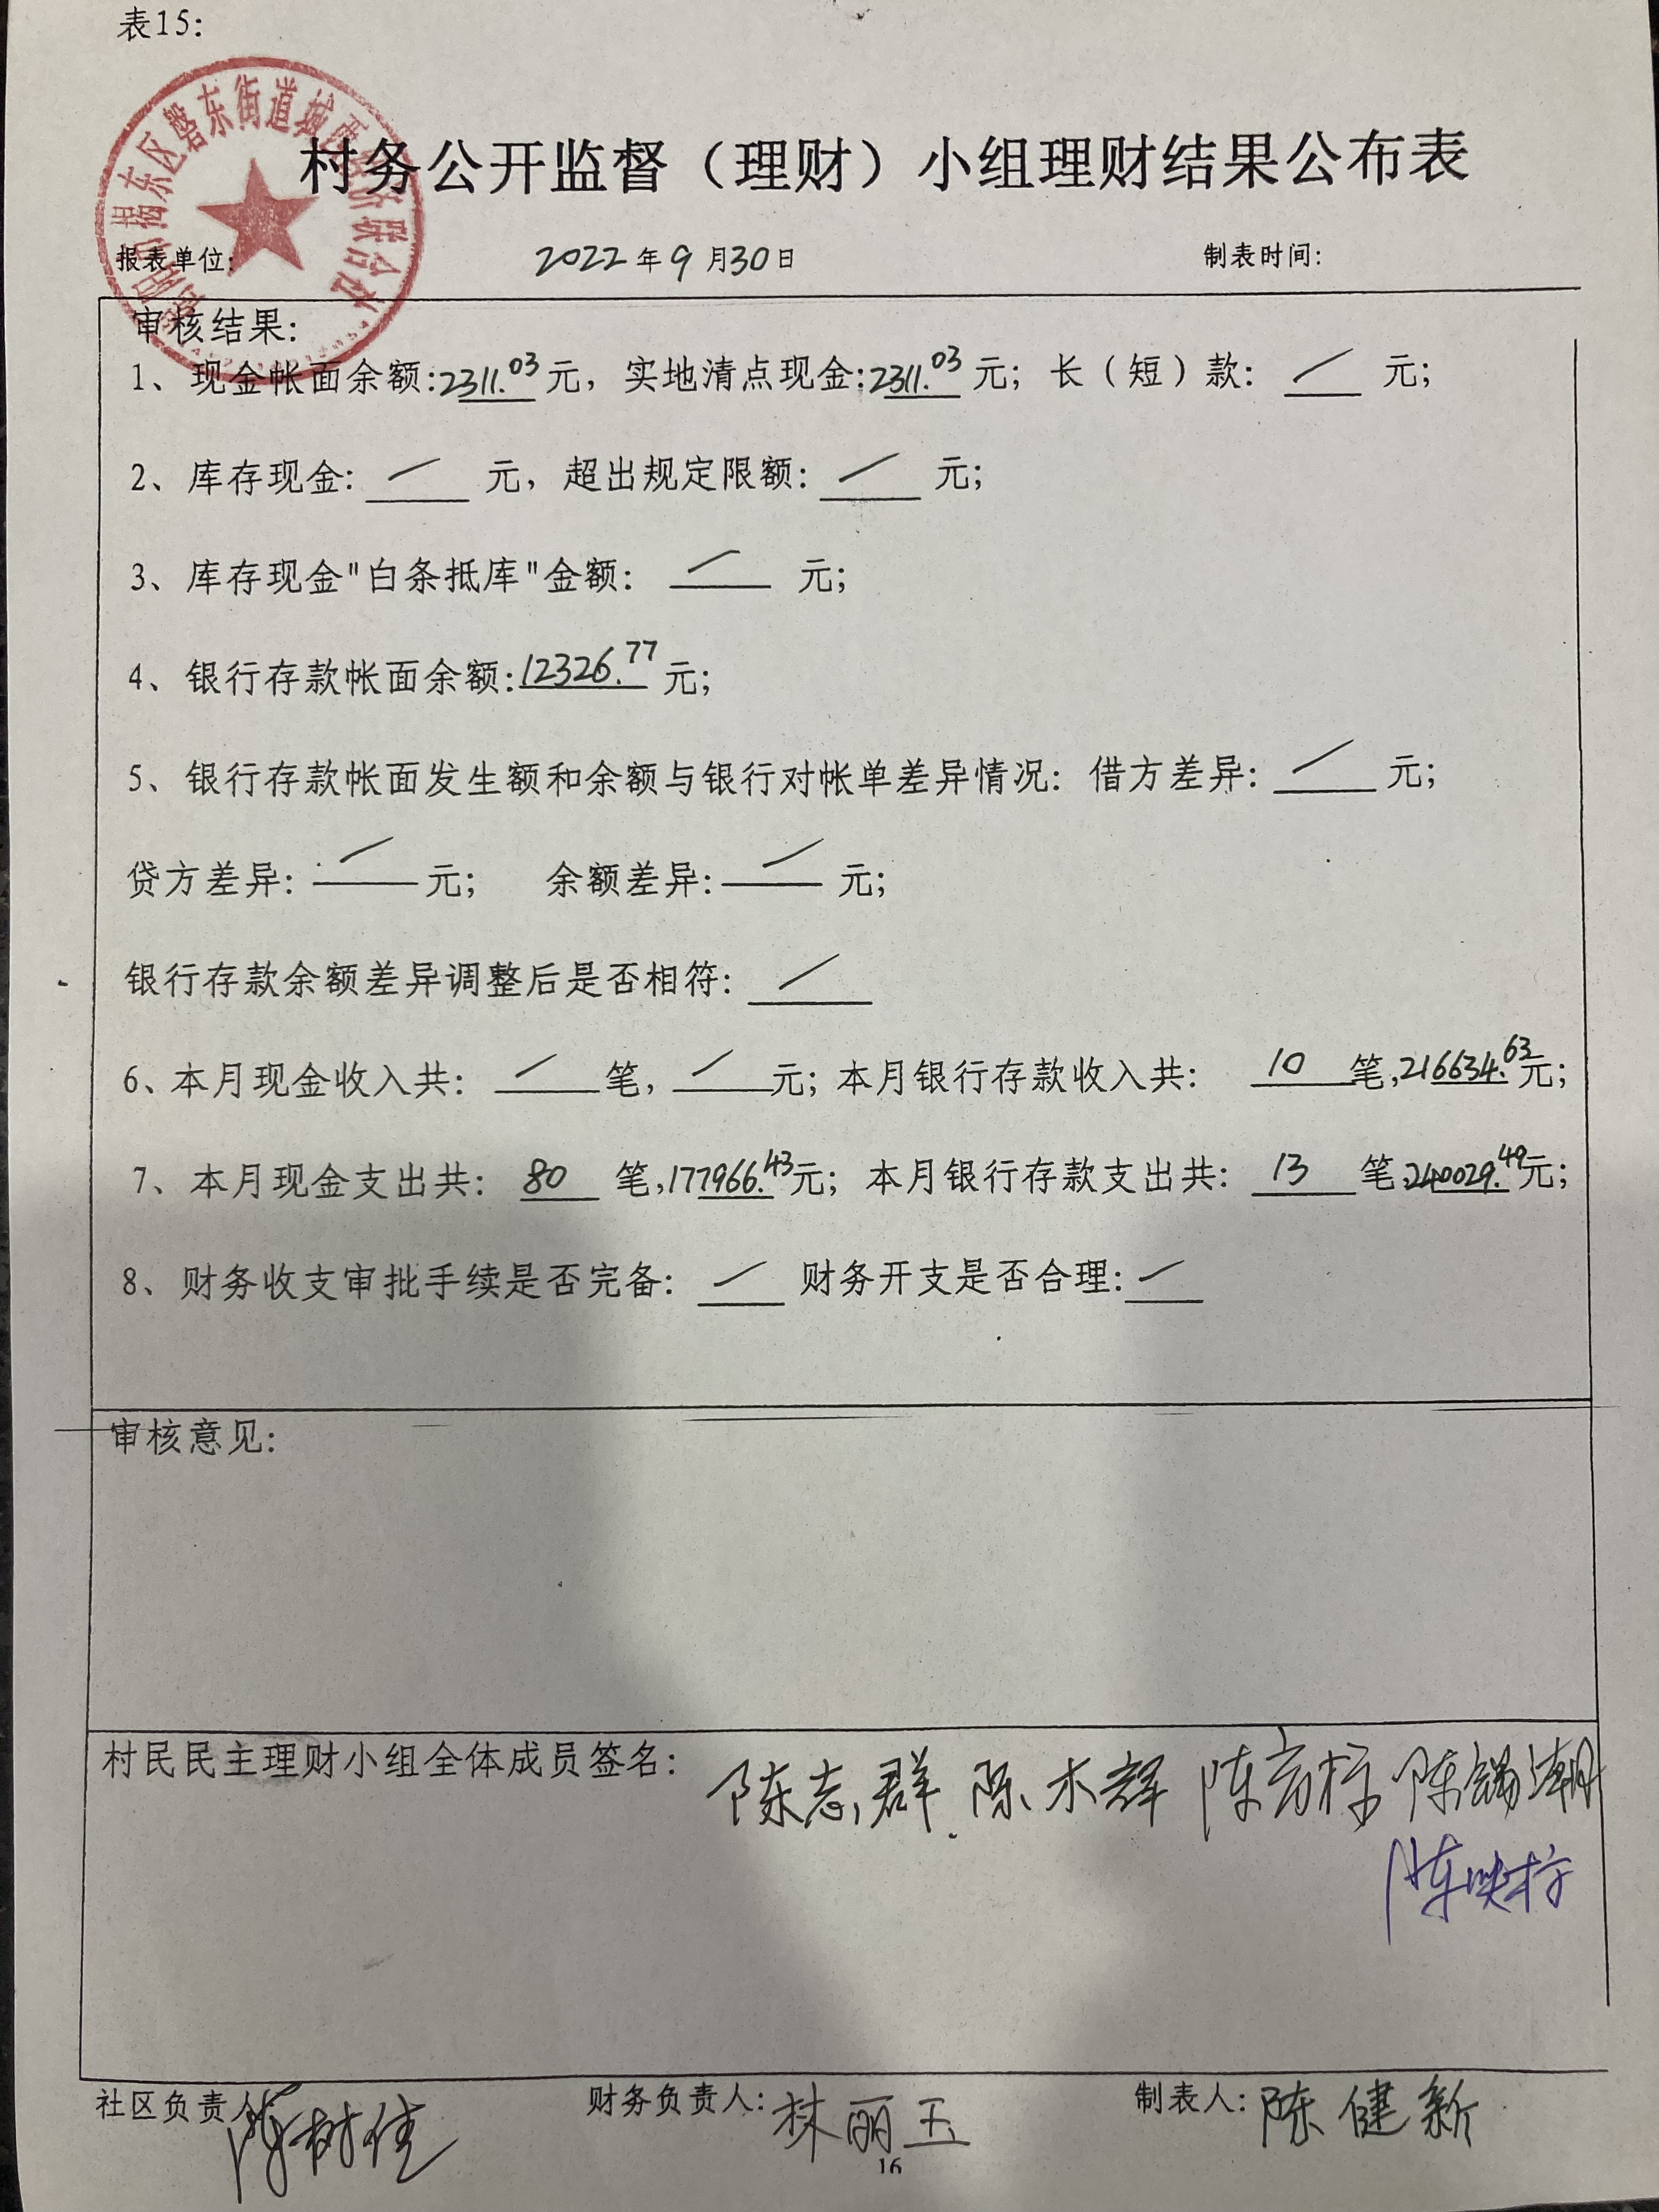 表15:
揭阳市揭东区磐东街道城西经济联合社
村务公开监督（理财）小组理财结果公布表
报表单位: 2022年9月30日 制表时间:
审核结果:
1、现金帐面余额:2311.03元，实地清点现金:2311.03元；长（短）款: / 元；
2、库存现金: / 元，超出规定限额: / 元；
3、库存现金"白条抵库"金额: / 元；
4、银行存款帐面余额:12326.77元；
5、银行存款帐面发生额和余额与银行对帐单差异情况: 借方差异: / 元；
贷方差异: / 元； 余额差异: / 元；
银行存款余额差异调整后是否相符: /
6、本月现金收入共: / 笔, / 元；本月银行存款收入共: 10 笔,216634.63元；
7、本月现金支出共: 80 笔,177966.43元；本月银行存款支出共: 13 笔,240029.49元；
8、财务收支审批手续是否完备: / 财务开支是否合理: /
审核意见:
村民民主理财小组全体成员签名: 陈志群 陈木辉 陈锡潮
陈映标
社区负责人 陈树佳 财务负责人: 林丽玉 制表人: 陈健新
16